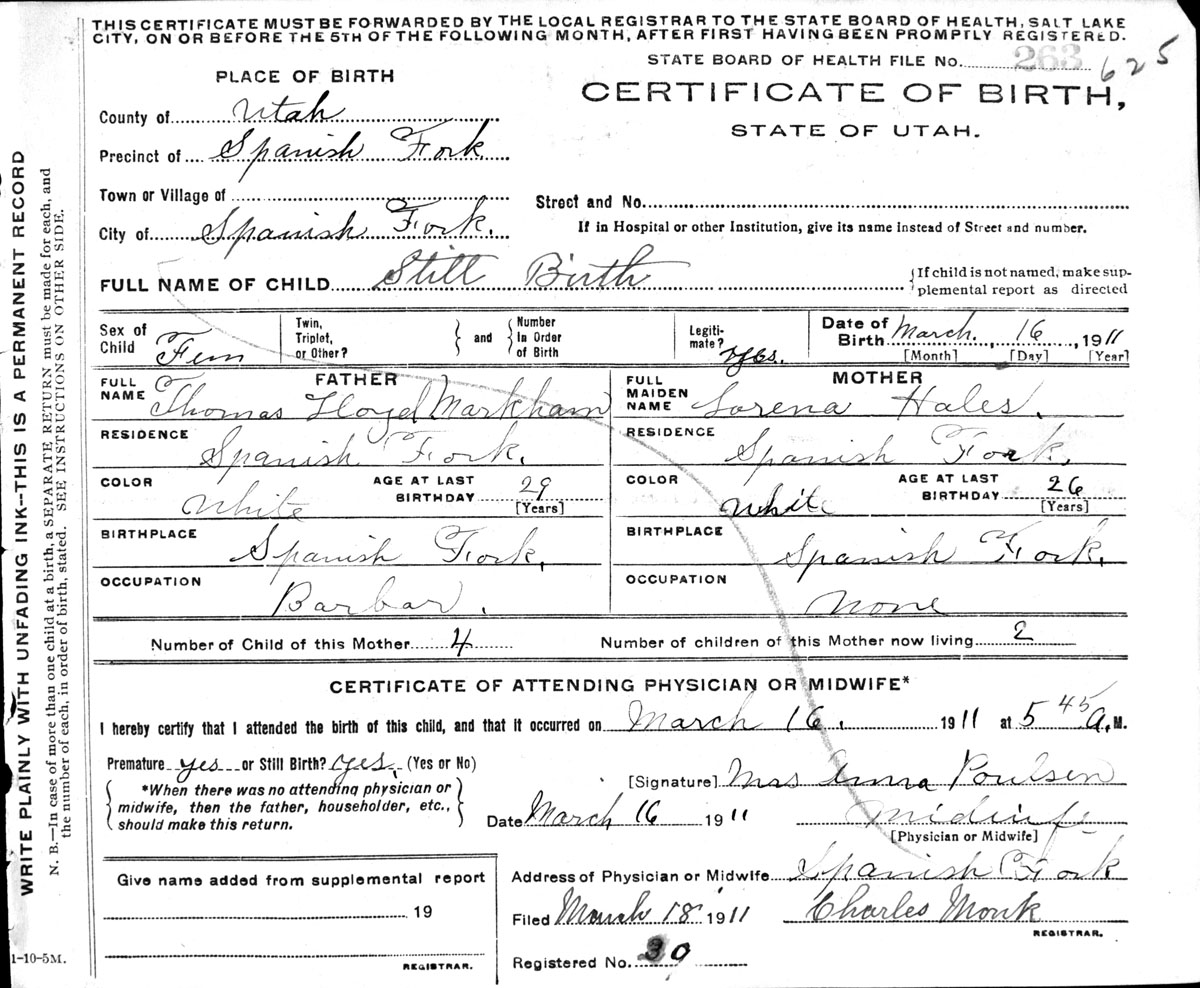 THIS CERTIFICATE MUST BE FORWARDED BY THE LOCAL REGISTRAR TO THE STATE BOARD OF HEALTH, SALT LAKE
CITY, ON OR BEFORE THE 5TH OF THE FOLLOWING MONTH, AFTER FIRST HAVING BEEN PROMPTLY REGISTERED.
STATE BOARD OF HEALTH FILE No. 263 625
PLACE OF BIRTH
CERTIFICATE OF BIRTH,
STATE OF UTAH.
County of Utah
Precinct of Spanish Fork
Town or Village of
Street and No.
City of Spanish Fork.
If in Hospital or other Institution, give its name instead of Street and number.
FULL NAME OF CHILD Still Birth
{If child is not named, make sup-
plemental report as directed
Sex of Child Fem
Twin, Triplet, or Other?
and
Number In Order of Birth
Legiti-mate? Yes.
Date of Birth March. 16, 1911
[Month] [Day] [Year]
FATHER
FULL NAME Thomas Lloyd Markham
MOTHER
FULL MAIDEN NAME Lorena Hales.
RESIDENCE Spanish Fork.
RESIDENCE Spanish Fork.
COLOR White
AGE AT LAST BIRTHDAY 29 [Years]
COLOR White
AGE AT LAST BIRTHDAY 26 [Years]
BIRTHPLACE Spanish Fork.
BIRTHPLACE Spanish Fork.
OCCUPATION Barbar.
OCCUPATION None
Number of Child of this Mother 4 Number of children of this Mother now living 2
CERTIFICATE OF ATTENDING PHYSICIAN OR MIDWIFE*
I hereby certify that I attended the birth of this child, and that it occurred on March 16. 1911 at 5 45 A. M.
Premature yes or Still Birth? yes, (Yes or No)
*When there was no attending physician or
midwife, then the father, householder, etc.,
should make this return.
[Signature] Mrs Anna Poulsen
Date March 16 1911 Midwife
[Physician or Midwife]
Give name added from supplemental report
19
REGISTRAR.
Address of Physician or Midwife Spanish Fork
Filed March 18 1911 Charles Monk
REGISTRAR.
Registered No. 39
WRITE PLAINLY WITH UNFADING INK--THIS IS A PERMANENT RECORD
N. B.—In case of more than one child at a birth, a SEPARATE RETURN must be made for each, and
the number of each, in order of birth, stated. SEE INSTRUCTIONS ON OTHER SIDE.
1-10-5M.